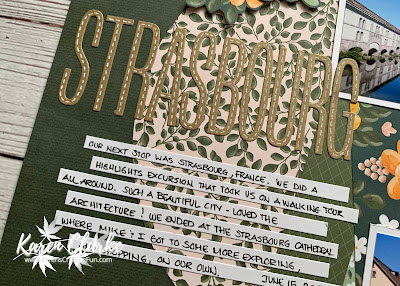 STRASBOURG
OUR NEXT STOP WAS STRASBOURG, FRANCE. WE DID A
HIGHLIGHTS EXCURSION THAT TOOK US ON A WALKING TOUR
ALL AROUND. SUCH A BEAUTIFUL CITY - LOVED THE
ARCHITECTURE! WE ENDED AT THE STRASBOURG CATHEDRAL
WHERE MIKE & I GOT TO SOME MORE EXPLORING,
ON OUR OWN. JUNE 15,
Karen Clarke